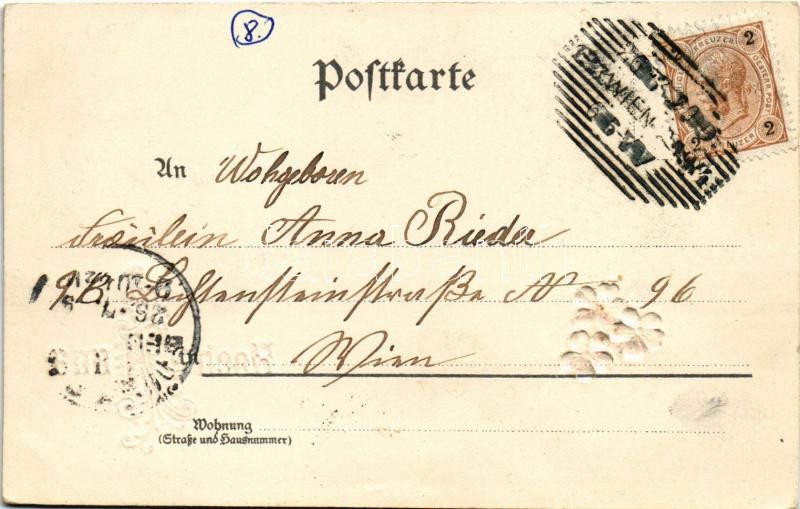 8.
Postkarte
2 KREUZER 2
WIEN
An Wohgeboren
Fräulein Anna Rieder
Lichtensteinstraße No 96
Wien
Wohnung
(Straße und Hausnummer)